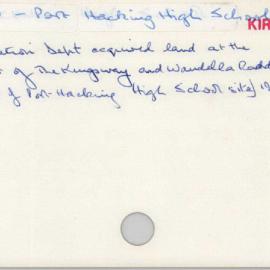 - Port Hacking High School
KIR
ation Dept acquired land at the
of The Kingsway and Wandella Road
of Port Hacking High School site) 19